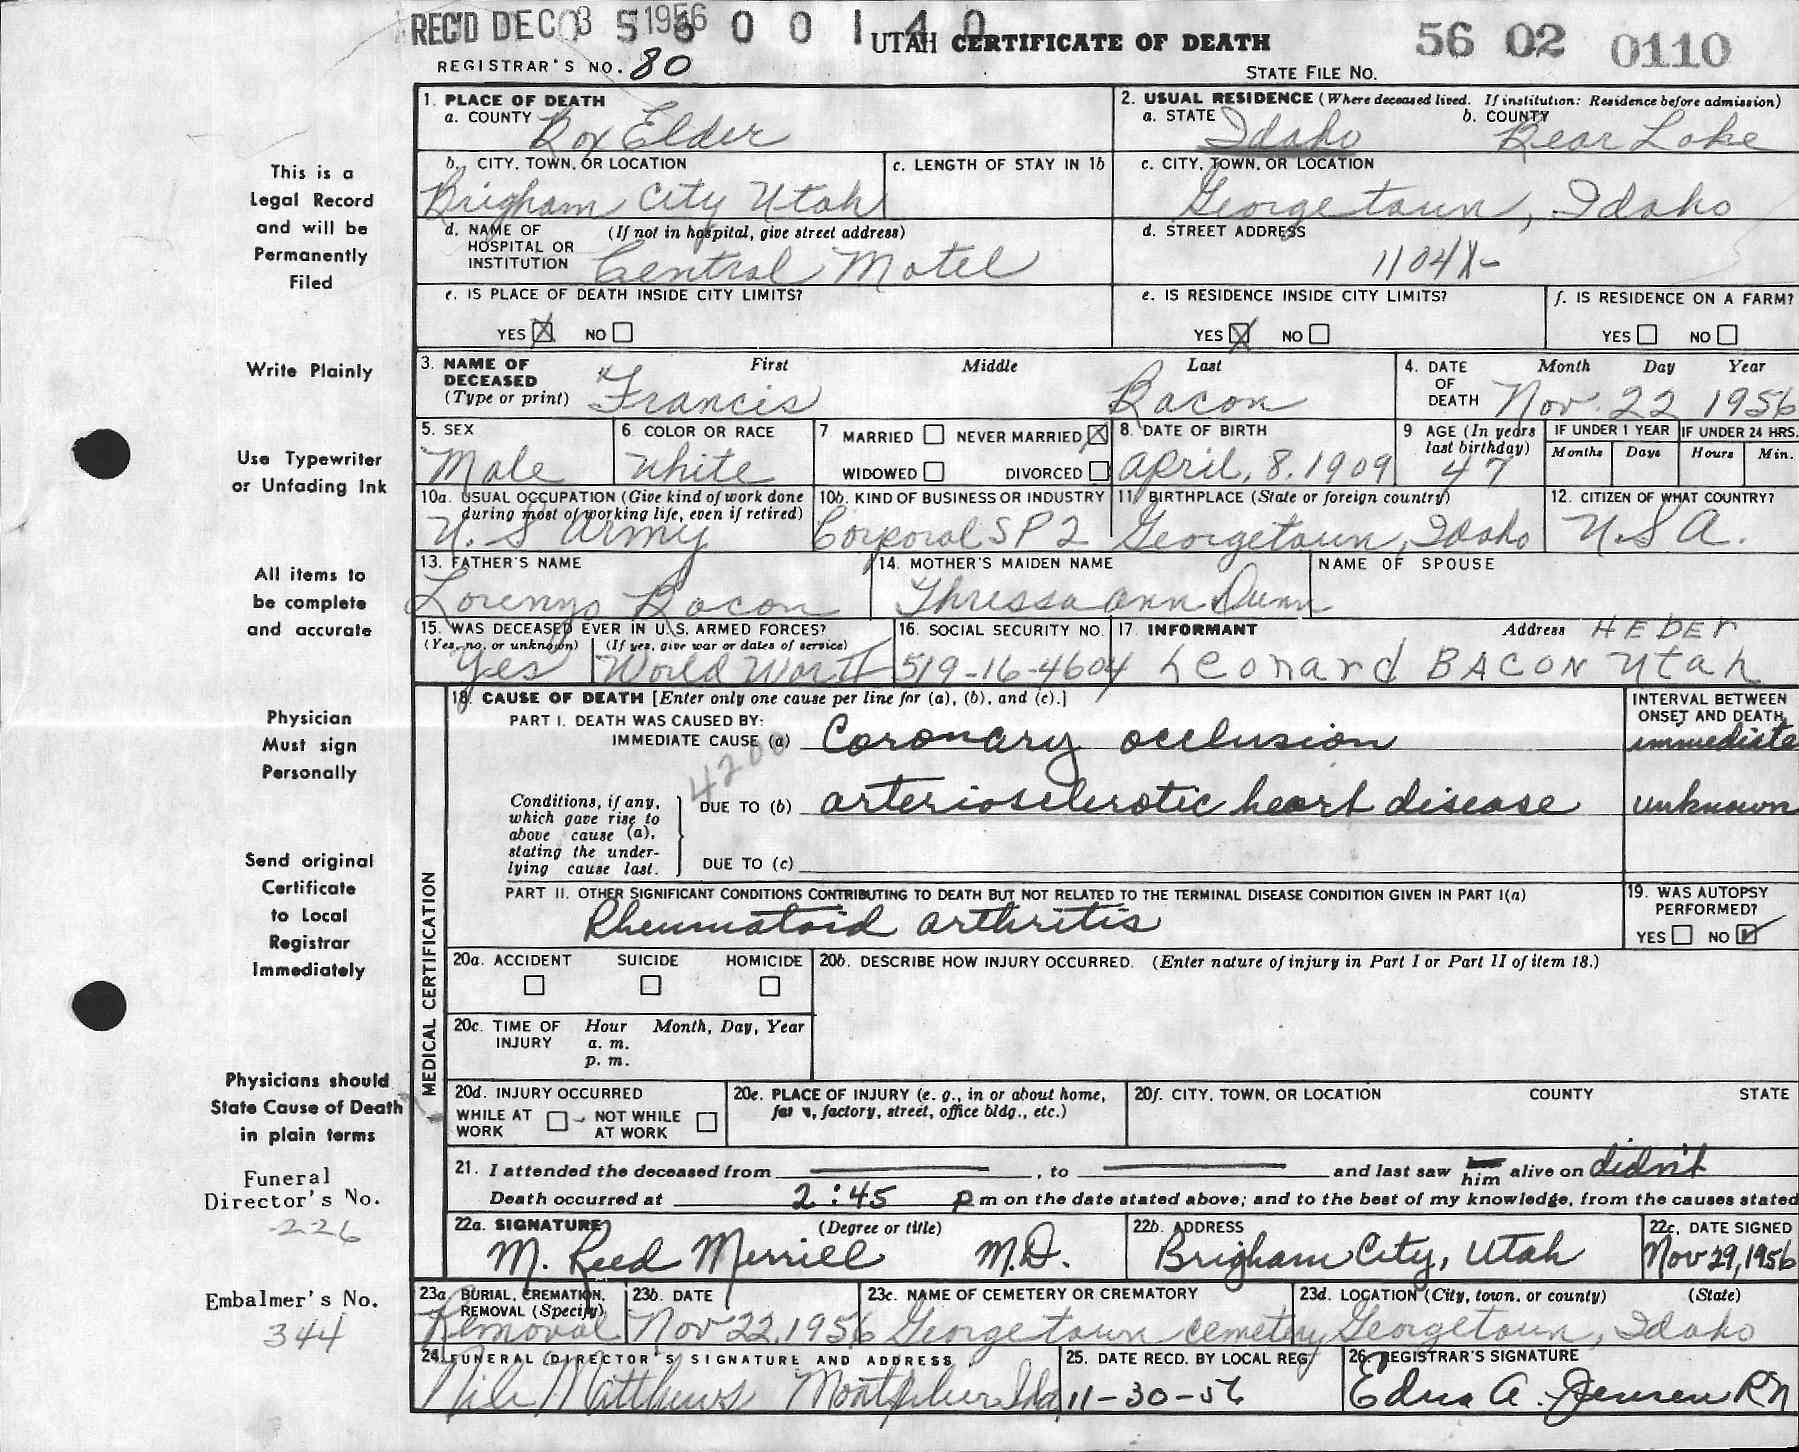 REC'D DEC 03 1956 5 6 0 0 1 4 0 UTAH CERTIFICATE OF DEATH 56 02 0110
REGISTRAR'S NO. 80 STATE FILE NO.
1. PLACE OF DEATH 2. USUAL RESIDENCE (Where deceased lived. If institution: Residence before admission)
a. COUNTY Box Elder a. STATE Idaho b. COUNTY Bear Lake
b. CITY, TOWN, OR LOCATION c. LENGTH OF STAY IN 1b c. CITY, TOWN, OR LOCATION
Brigham City Utah Georgetown, Idaho
d. NAME OF (If not in hospital, give street address) d. STREET ADDRESS
HOSPITAL OR
INSTITUTION Central Motel
e. IS PLACE OF DEATH INSIDE CITY LIMITS? e. IS RESIDENCE INSIDE CITY LIMITS? f. IS RESIDENCE ON A FARM?
YES X NO YES X NO YES NO
3. NAME OF First Middle Last 4. DATE Month Day Year
DECEASED OF
(Type or print) Francis Bacon DEATH Nov. 22 1956
5. SEX 6. COLOR OR RACE 7 MARRIED NEVER MARRIED X 8. DATE OF BIRTH 9 AGE (In years IF UNDER 1 YEAR IF UNDER 24 HRS.
last birthday) Months Days Hours Min.
Male White WIDOWED DIVORCED April, 8. 1909 47
10a. USUAL OCCUPATION (Give kind of work done 10b. KIND OF BUSINESS OR INDUSTRY 11. BIRTHPLACE (State or foreign country) 12. CITIZEN OF WHAT COUNTRY?
during most of working life, even if retired)
U. S Army Corporal SP 2 Georgetown, Idaho U.S A.
13. FATHER'S NAME 14. MOTHER'S MAIDEN NAME NAME OF SPOUSE
Lorenzo Bacon Thressa Ann Dunn
15. WAS DECEASED EVER IN U.S. ARMED FORCES? 16. SOCIAL SECURITY NO. 17. INFORMANT Address HEBER
(Yes, no, or unknown) (If yes, give war or dates of service)
Yes World War II 519-16-4604 Leonard BACON Utah
18. CAUSE OF DEATH [Enter only one cause per line for (a), (b), and (c).] INTERVAL BETWEEN
PART I. DEATH WAS CAUSED BY: ONSET AND DEATH
IMMEDIATE CAUSE (a) Coronary occlusion immediate
4200
Conditions, if any, DUE TO (b) arteriosclerotic heart disease unknown
which gave rise to
above cause (a),
stating the under-
lying cause last. DUE TO (c)
PART II. OTHER SIGNIFICANT CONDITIONS CONTRIBUTING TO DEATH BUT NOT RELATED TO THE TERMINAL DISEASE CONDITION GIVEN IN PART I(a) 19. WAS AUTOPSY
PERFORMED?
Rheumatoid arthritis YES NO ✓
20a. ACCIDENT SUICIDE HOMICIDE 20b. DESCRIBE HOW INJURY OCCURRED. (Enter nature of injury in Part I or Part II of item 18.)
20c. TIME OF Hour Month, Day, Year
INJURY a. m.
p. m.
20d. INJURY OCCURRED 20e. PLACE OF INJURY (e. g., in or about home, 20f. CITY, TOWN, OR LOCATION COUNTY STATE
WHILE AT NOT WHILE factory, street, office bldg., etc.)
WORK AT WORK
21. I attended the deceased from , to and last saw him alive on didn't
Death occurred at 2:45 p m on the date stated above; and to the best of my knowledge, from the causes stated
22a. SIGNATURE (Degree or title) 22b. ADDRESS 22c. DATE SIGNED
M. Reed Merrill M.D. Brigham City, Utah Nov 29, 1956
23a. BURIAL, CREMATION, 23b. DATE 23c. NAME OF CEMETERY OR CREMATORY 23d. LOCATION (City, town, or county) (State)
REMOVAL (Specify)
Removal Nov 22, 1956 Georgetown cemetery Georgetown, Idaho
24. FUNERAL DIRECTOR'S SIGNATURE AND ADDRESS 25. DATE RECD. BY LOCAL REG. 26. REGISTRAR'S SIGNATURE
Matthews Montpelier Ida 11-30-56 Edna A. Jensen RN
MEDICAL CERTIFICATION
This is a
Legal Record
and will be
Permanently
Filed
Write Plainly
Use Typewriter
or Unfading Ink
All items to
be complete
and accurate
Physician
Must sign
Personally
Send original
Certificate
to Local
Registrar
Immediately
Physicians should
State Cause of Death
in plain terms
Funeral
Director's No.
226
Embalmer's No.
344